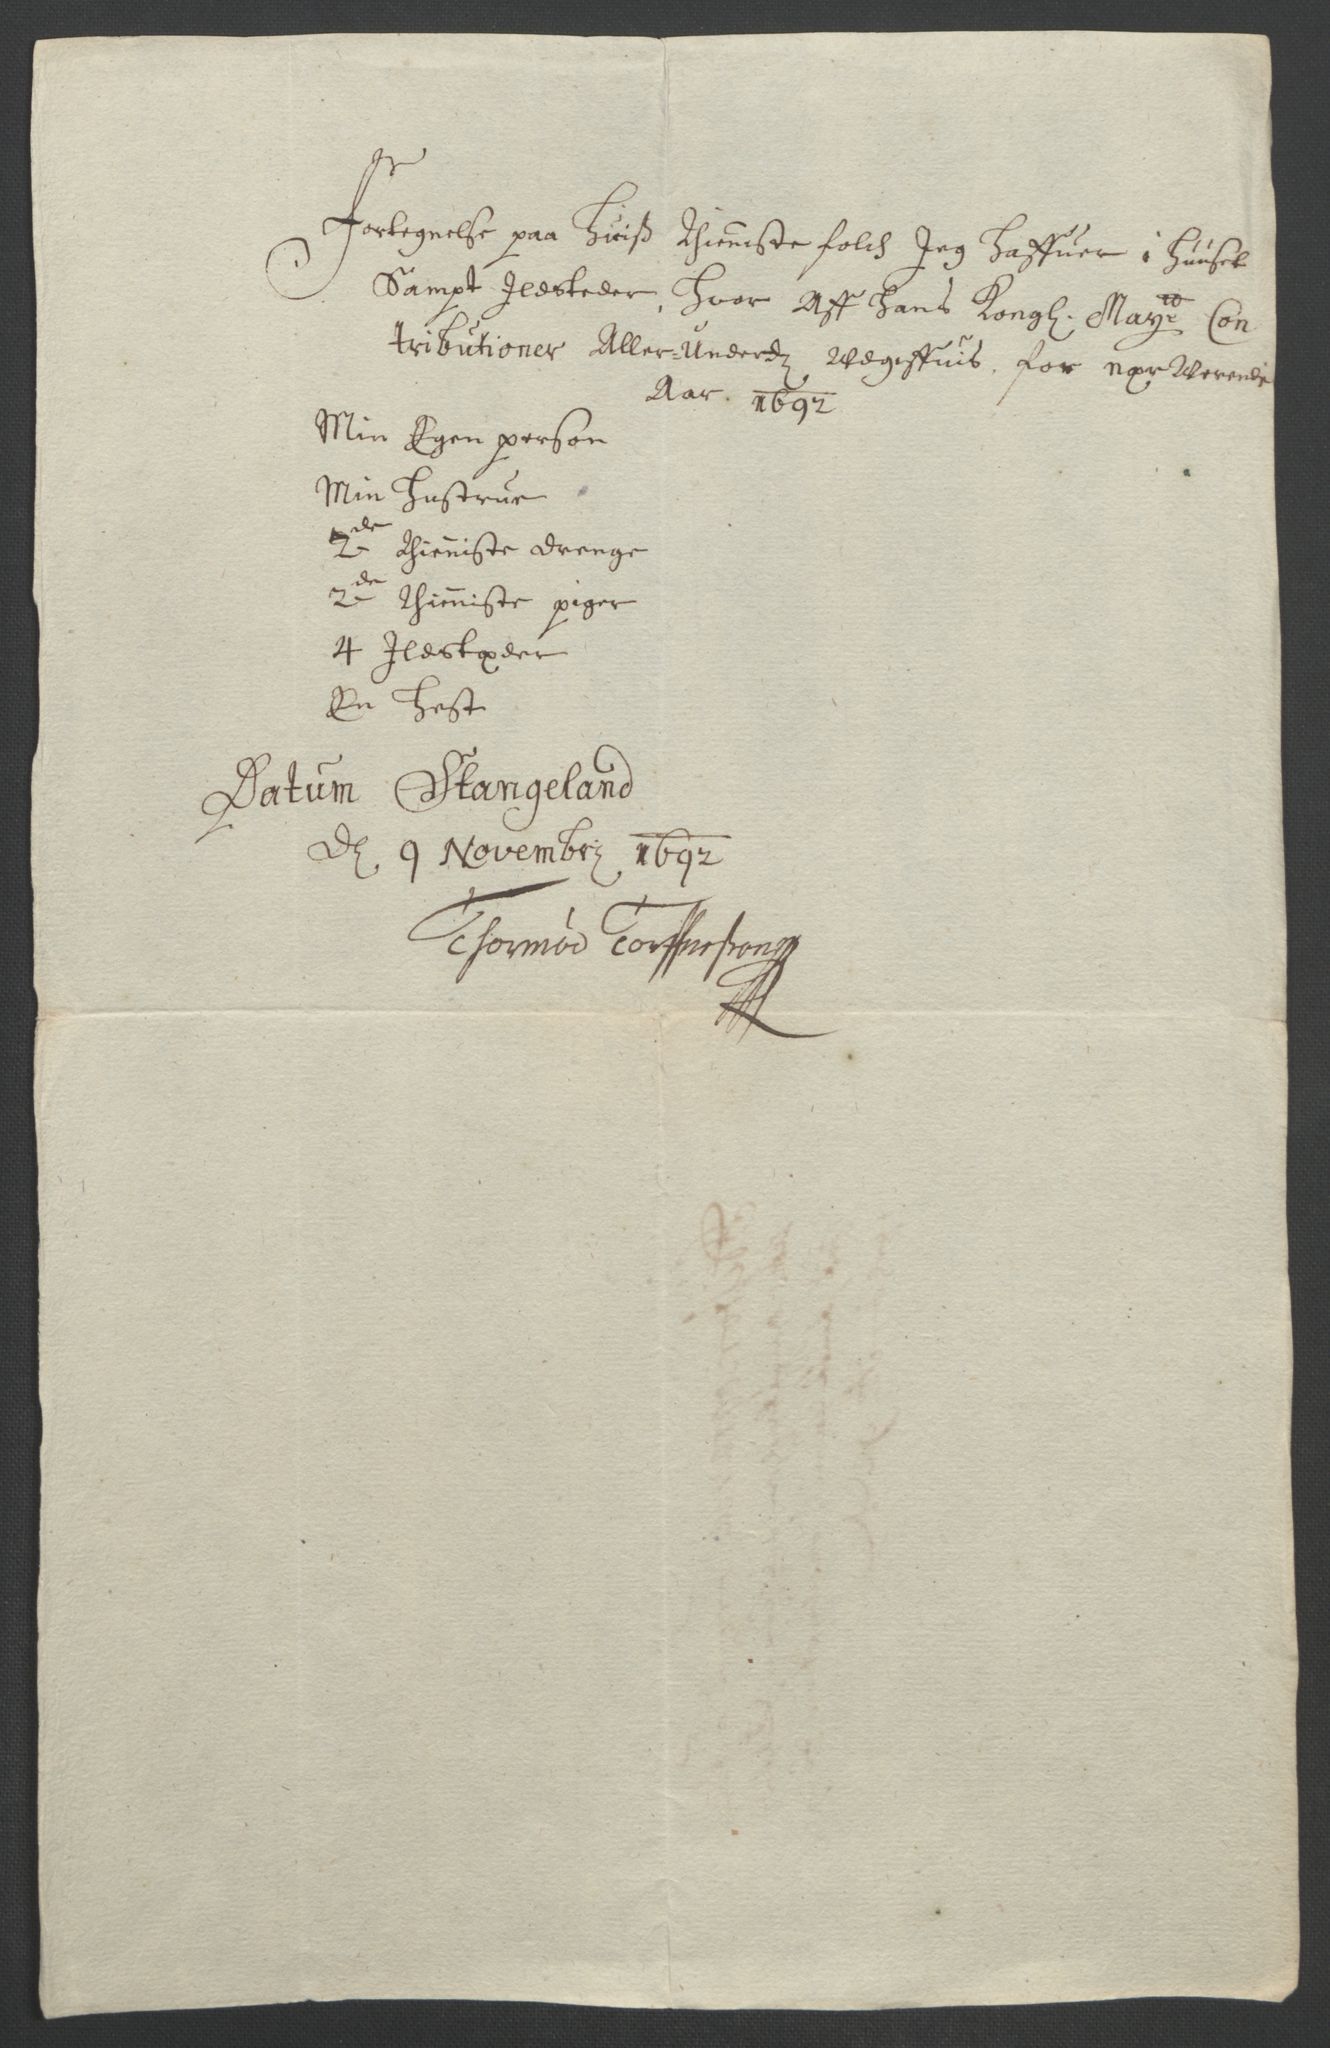 Fortegnelse paa huiss thienniste folch Jeg haffuer i huuset
Sampt Ildsteder, hvor Aff hans Kongl. Mayts Con
tributioner Aller-Underd. udgiffuis. for nærwerende
Aar. 1692
Min Egen person
Min hustrue
2de thienniste drenge
2de thienniste piger
4 Ildstæder
En hest
Datum Stangeland
D. 9 Novembr. 1692
Thormod Torffuesøn